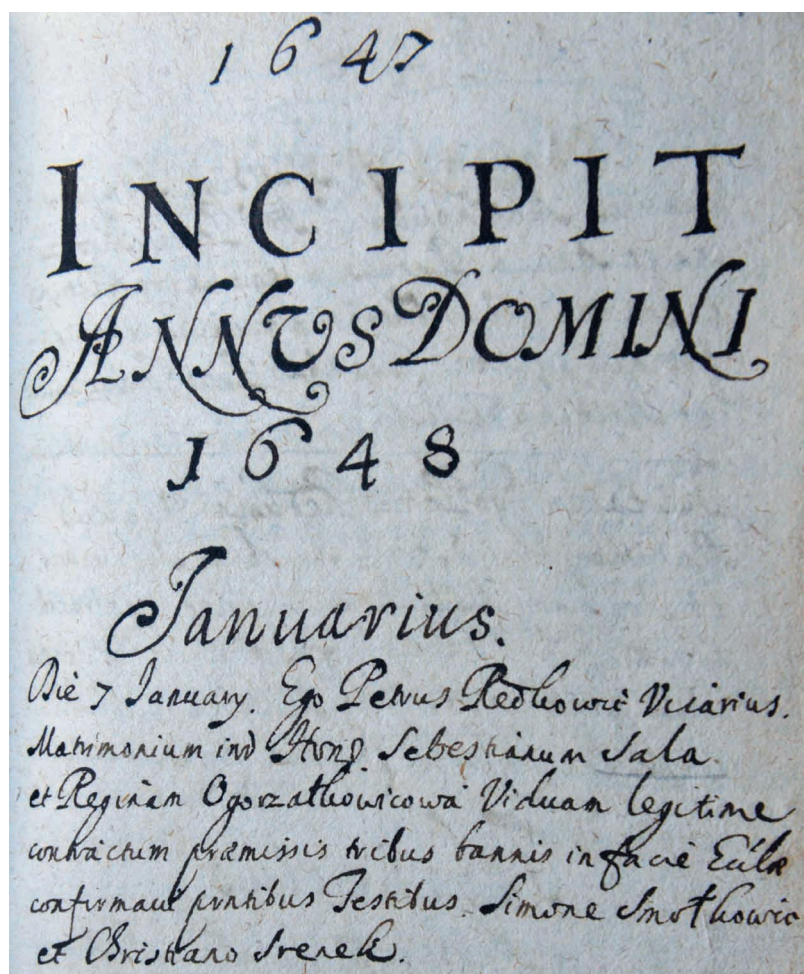 1647
INCIPIT
ANNUS DOMINI
1648
Ianuarius.
Die 7 Ianuary. Ego Petrus Redkowic Vicarius.
Matrimonium int Hon. Sebestianum Sala
et Reginam Ogorzałkowicowa Viduam legitime
contractum præmissis tribus bannis in facie Eccłæ
confirmavi pntibus Testibus. Simone Smołkowic
et Christiano Srenek.